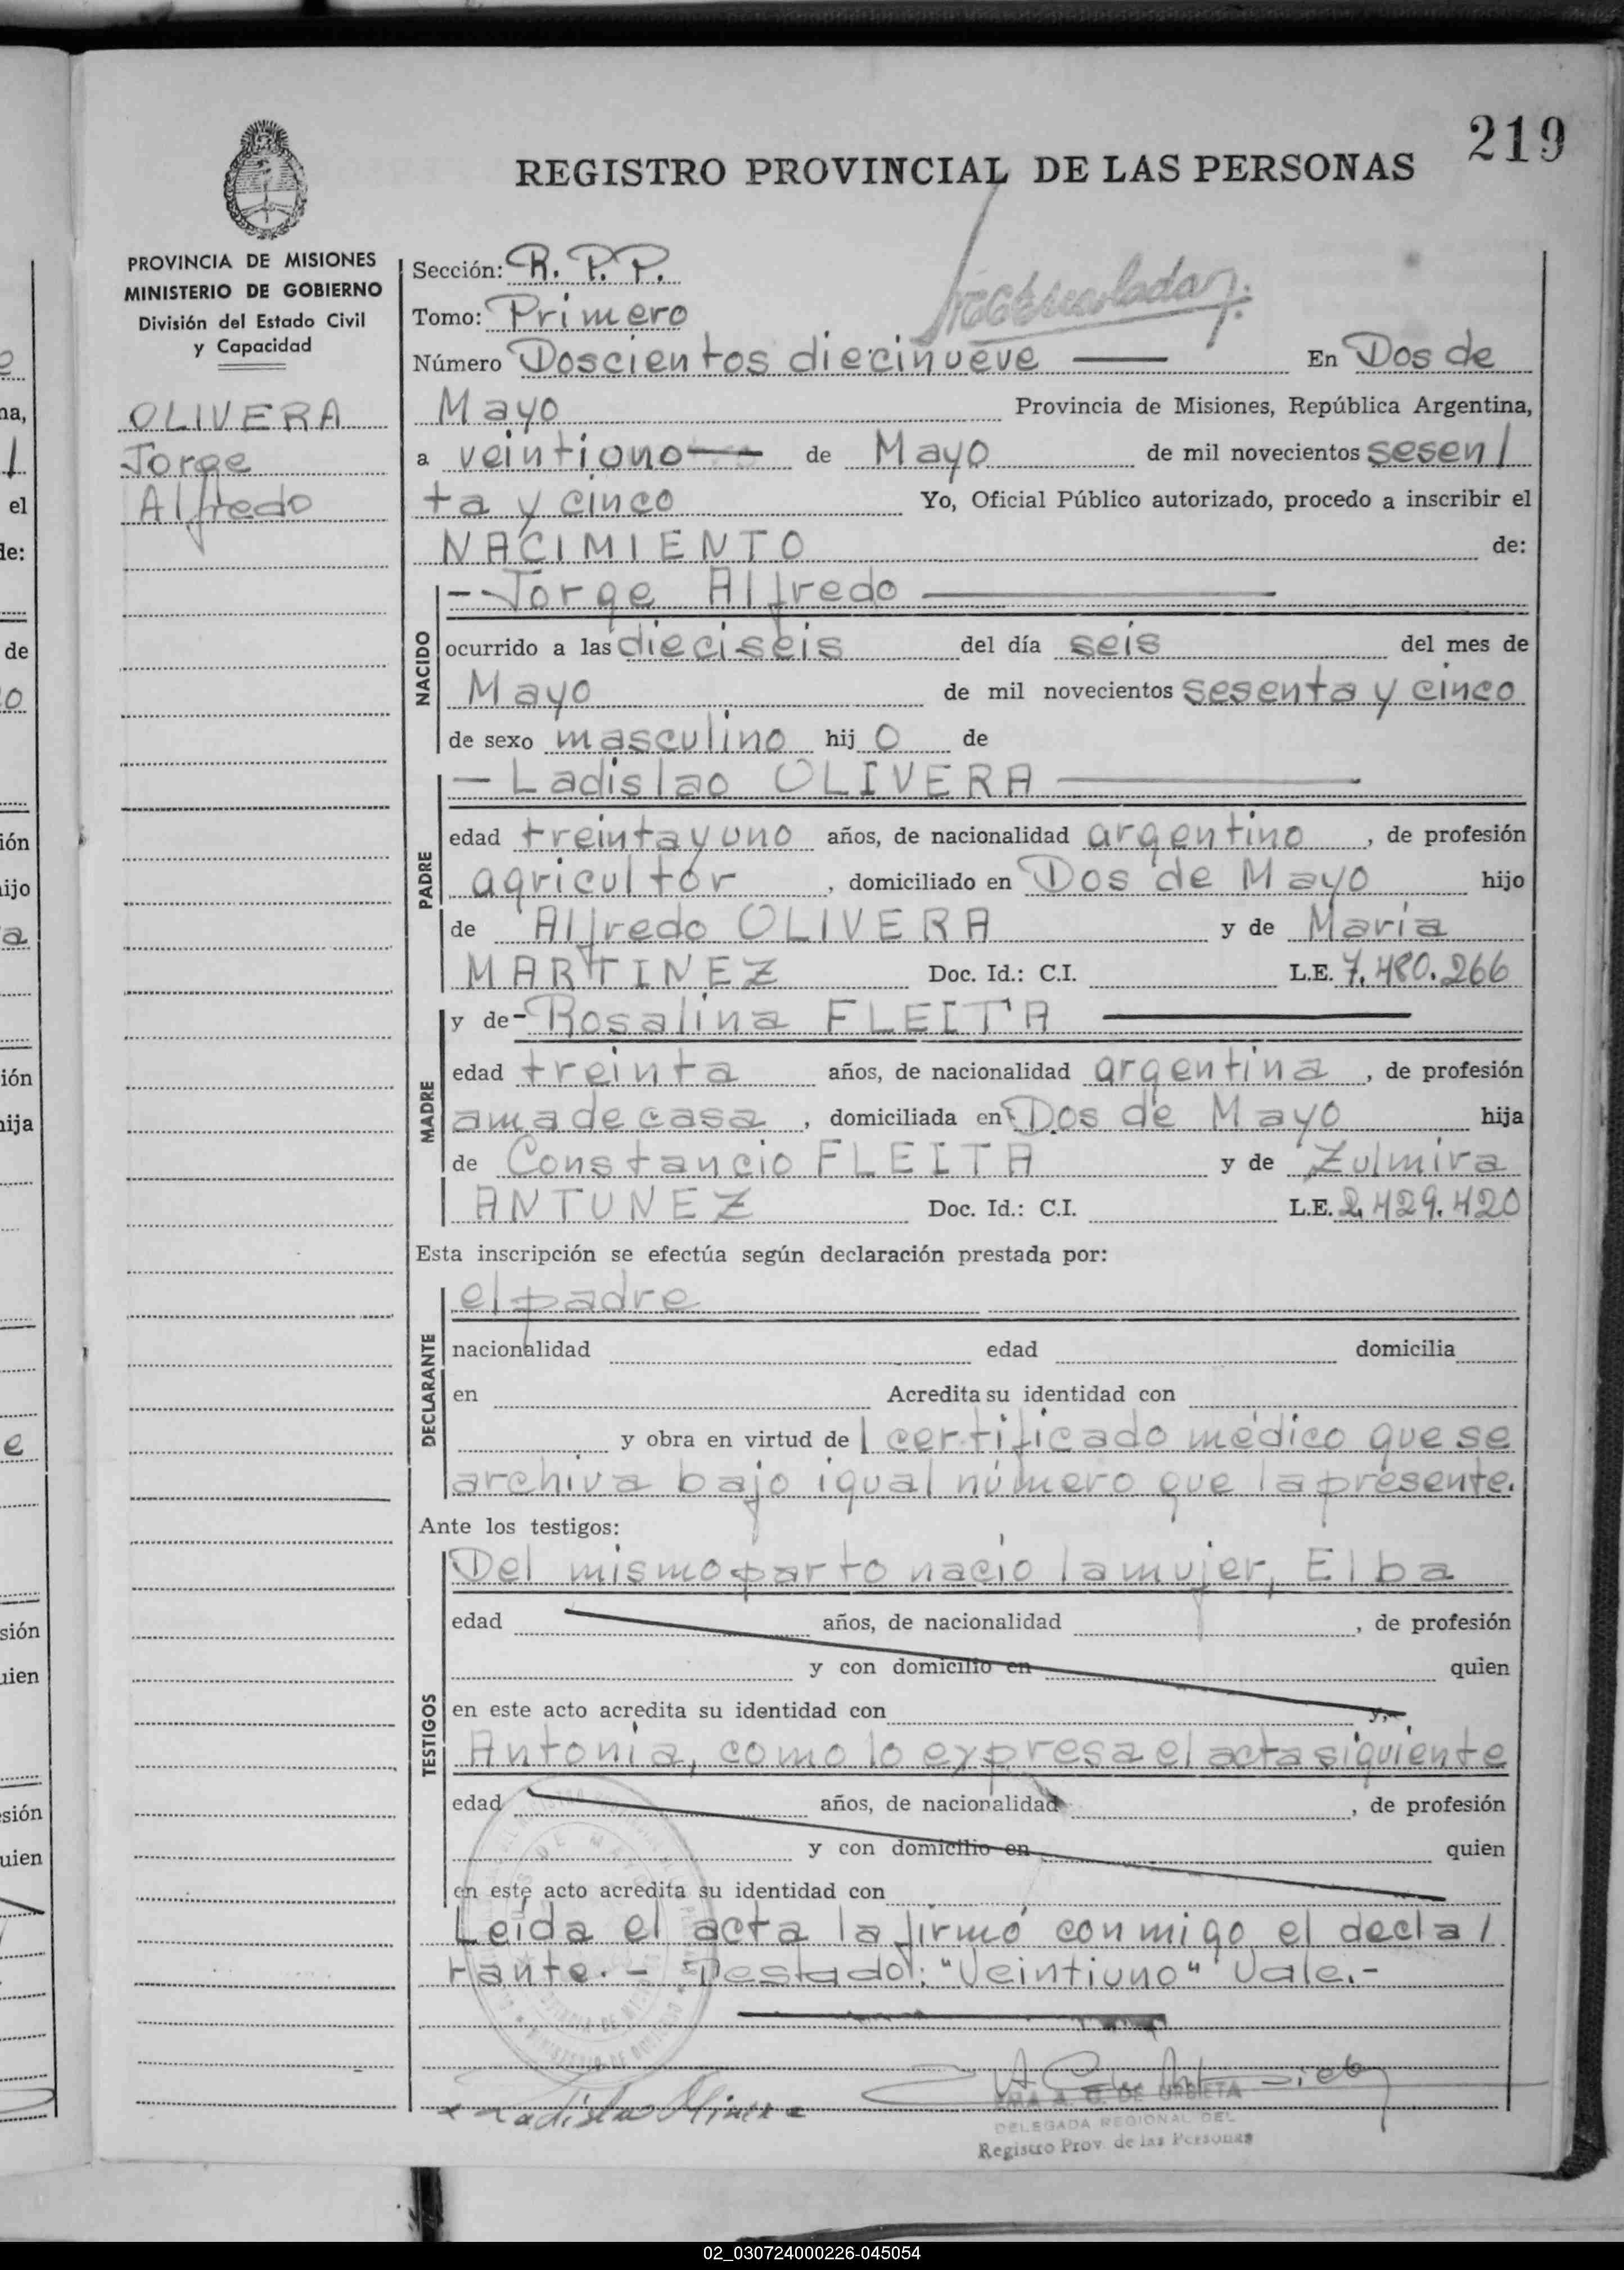 219
REGISTRO PROVINCIAL DE LAS PERSONAS
PROVINCIA DE MISIONES
MINISTERIO DE GOBIERNO
División del Estado Civil
y Capacidad
OLIVERA
Jorge
Alfredo
Sección: R. P. P.
Tomo: Primero
Número Doscientos diecinueve En Dos de
Mayo Provincia de Misiones, República Argentina,
a veintiuno de Mayo de mil novecientos sesen/
ta y cinco Yo, Oficial Público autorizado, procedo a inscribir el
NACIMIENTO de:
NACIDO
-- Jorge Alfredo
ocurrido a las dieciseis del día seis del mes de
Mayo de mil novecientos sesenta y cinco
de sexo masculino hijo de
PADRE
— Ladislao OLIVERA
edad treinta y uno años, de nacionalidad argentino, de profesión
agricultor, domiciliado en Dos de Mayo hijo
de Alfredo OLIVERA y de María
MARTINEZ Doc. Id.: C.I. L.E. 7.480.266
MADRE
y de - Rosalina FLEITA
edad treinta años, de nacionalidad argentina, de profesión
ama de casa, domiciliada en Dos de Mayo hija
de Constancio FLEITA y de Zulmira
ANTUNEZ Doc. Id.: C.I. L.E. 2.429.420
Esta inscripción se efectúa según declaración prestada por:
DECLARANTE
el padre
nacionalidad edad domicilia
en Acredita su identidad con
y obra en virtud de l certificado médico que se
archiva bajo igual número que la presente.
Ante los testigos:
TESTIGOS
Del mismo parto nació la mujer, Elba
edad años, de nacionalidad , de profesión
y con domicilio en quien
en este acto acredita su identidad con y,
Antonia, como lo expresa el acta siguiente
edad años, de nacionalidad , de profesión
y con domicilio en quien
en este acto acredita su identidad con
Leída el acta la firmó conmigo el decla/
rante. - Testado: "Veintiuno" Vale.-
DELEGADA REGIONAL DEL
Registro Prov. de las Personas
02_030724000226-045054